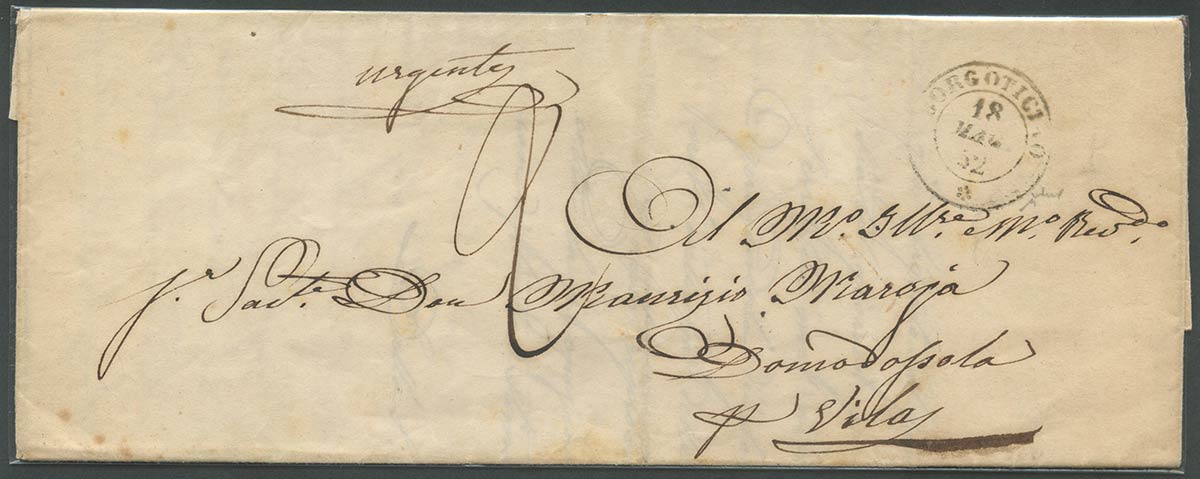 urgente
BORGOTICINO
18
MAG.
52
Al M.º Illre. e M.º Revdo.
Sr. Sacte. Don Maurizio Maroja
Domodossola
p Villa